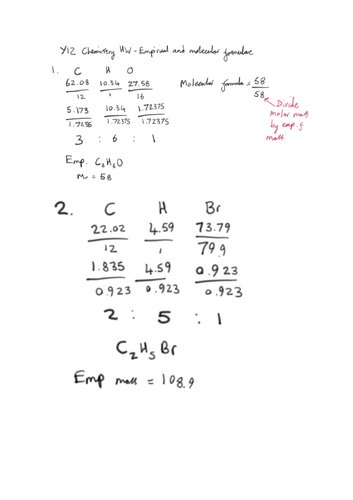 Y12 Chemistry HW - Empirical and molecular formulae
1. C H O
62.08 10.34 27.58
12 1 16
5.173 10.34 1.72375
1.7235 1.72375 1.72375
3 : 6 : 1
Emp. C₃H₆O
Mr = 58
Molecular formula = 58
58
Divide
molar mass
by emp. f
mass
2. C H Br
22.02 4.59 73.79
12 1 79.9
1.835 4.59 0.923
0.923 0.923 0.923
2 : 5 : 1
C₂H₅Br
Emp mass = 108.9